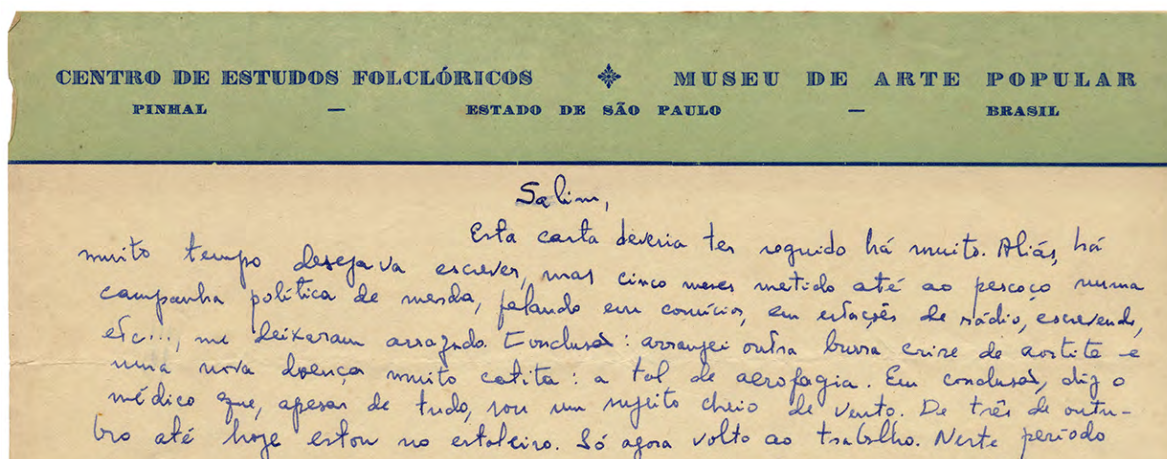 CENTRO DE ESTUDOS FOLCLÓRICOS MUSEU DE ARTE POPULAR
PINHAL — ESTADO DE SÃO PAULO — BRASIL
Salim,
Esta carta deveria ter seguido há muito. Aliás, há
muito tempo desejava escrever, mas cinco meses metido até ao pescoço numa
campanha política de merda, falando em comícios, em estações de rádio, escrevendo,
etc..., me deixaram arrazado. Conclusão: arranjei outra burra crise de aortite e
uma nova doença muito catita: a tal de aerofagia. Em conclusão, diz o
médico que, apesar de tudo, sou um sujeito cheio de vento. De três de outu-
bro até hoje estou no estaleiro. Só agora volto ao trabalho. Neste período